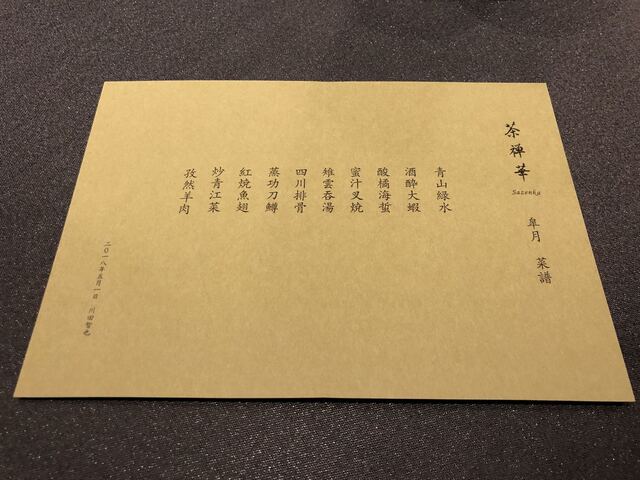 茶禅華
Sazenka
皐月 菜譜
青山緑水
酒酔大蝦
酸橘海蜇
蜜汁叉焼
雉雲呑湯
四川排骨
蒸功刀鱒
紅焼魚翅
炒青江菜
孜然羊肉
二〇一八年五月一日 川田智也